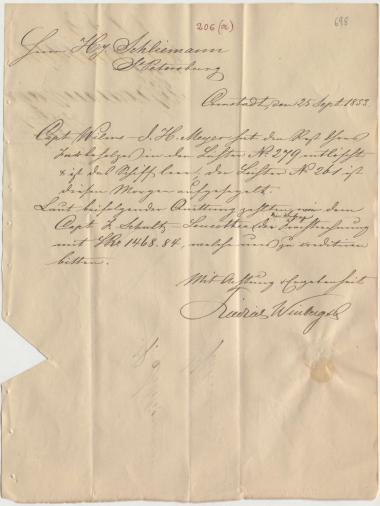 206 (a)
698
Herrn Hy. Schliemann
St Petersburg
Cronstadt, den 25 Sept. 1853.
Capt. - J. H. Meyer hat den Rest Ihres
in den Lichter No 279 entlöscht
& ist das Schiff leer, der Lichter No 261 ist
diesen Morgen aufgesegelt.
Laut beifolgender Quittung zahlten wir dem
Capt. Schultz der Frachtrechnung
mit 1468.84, welche uns zu creditiren
bitten.
Mit Achtung & Ergebenheit